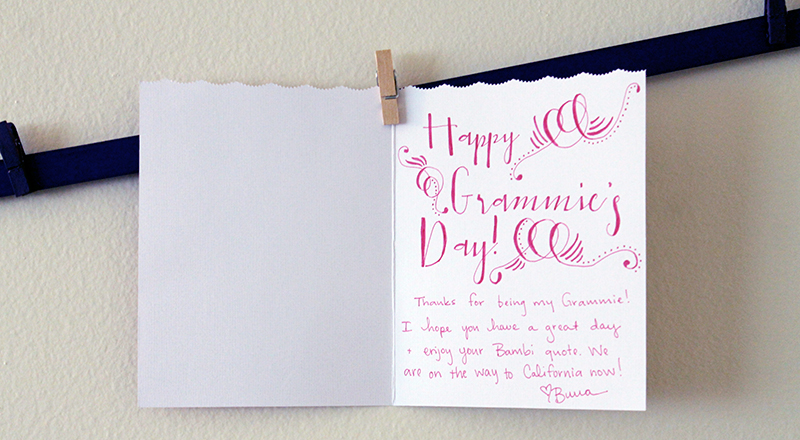 Happy
Grammie's
Day!
Thanks for being my Grammie!
I hope you have a great day
+ enjoy your Bambi quote. We
are on the way to California now!